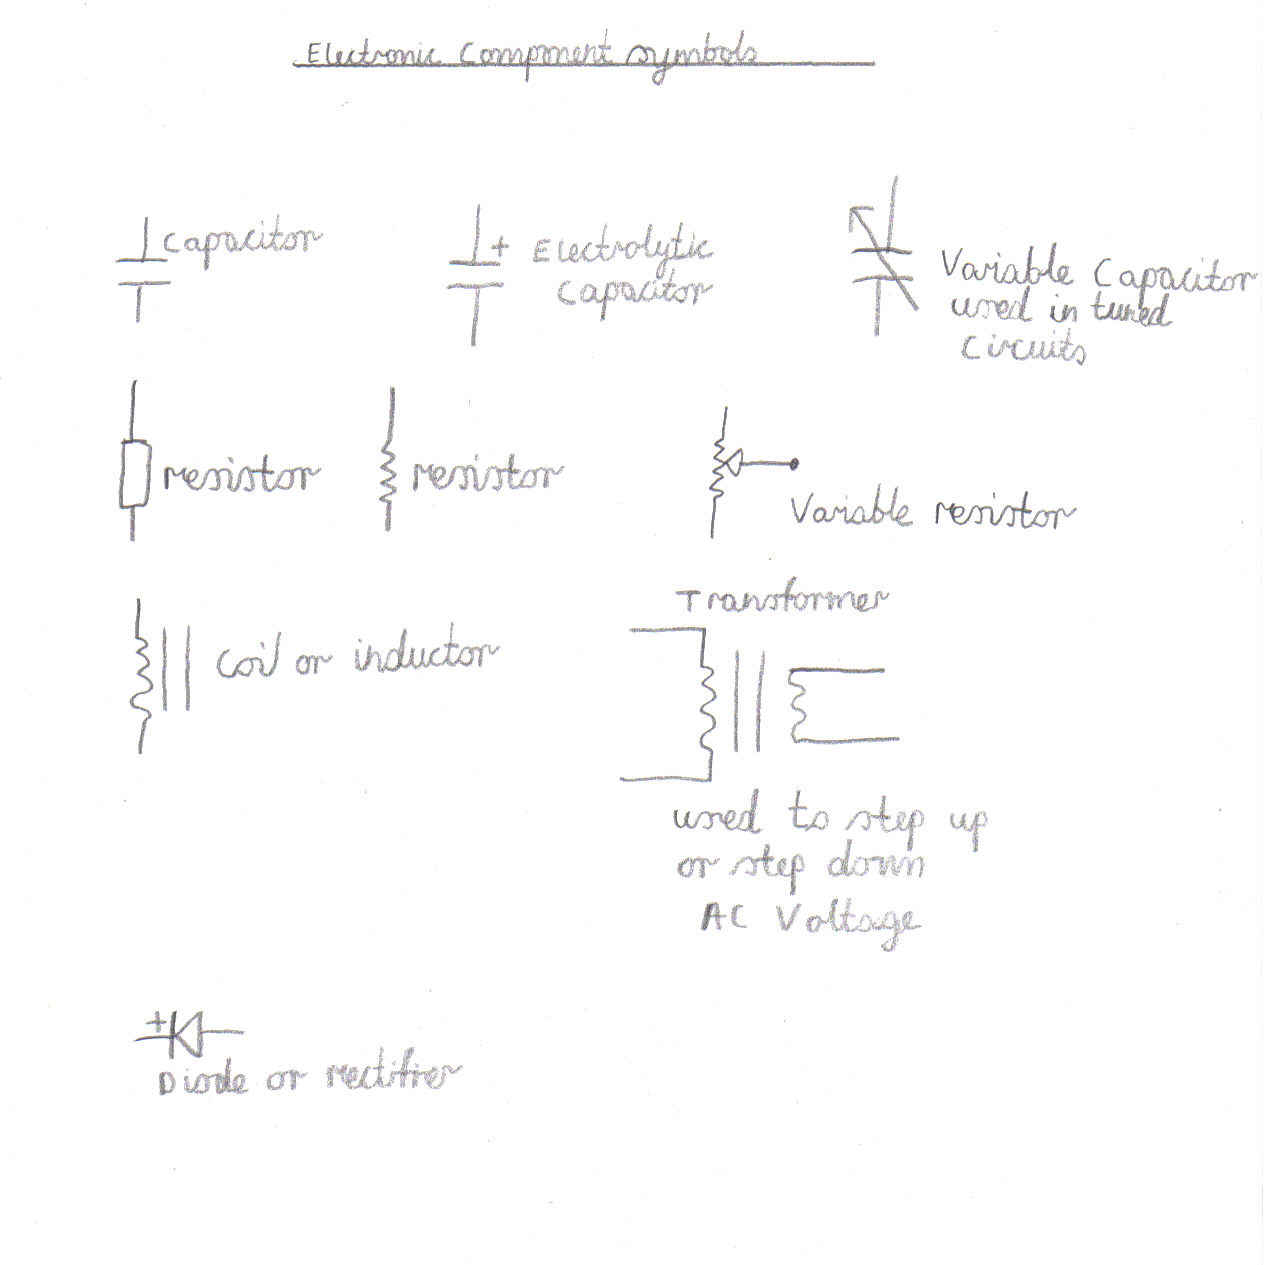 Electronic Component symbols
Capacitor
+ Electrolytic
Capacitor
Variable Capacitor
used in tuned
Circuits
resistor
resistor
Variable resistor
coil or inductor
Transformer
used to step up
or step down
AC Voltage
+
Diode or rectifier